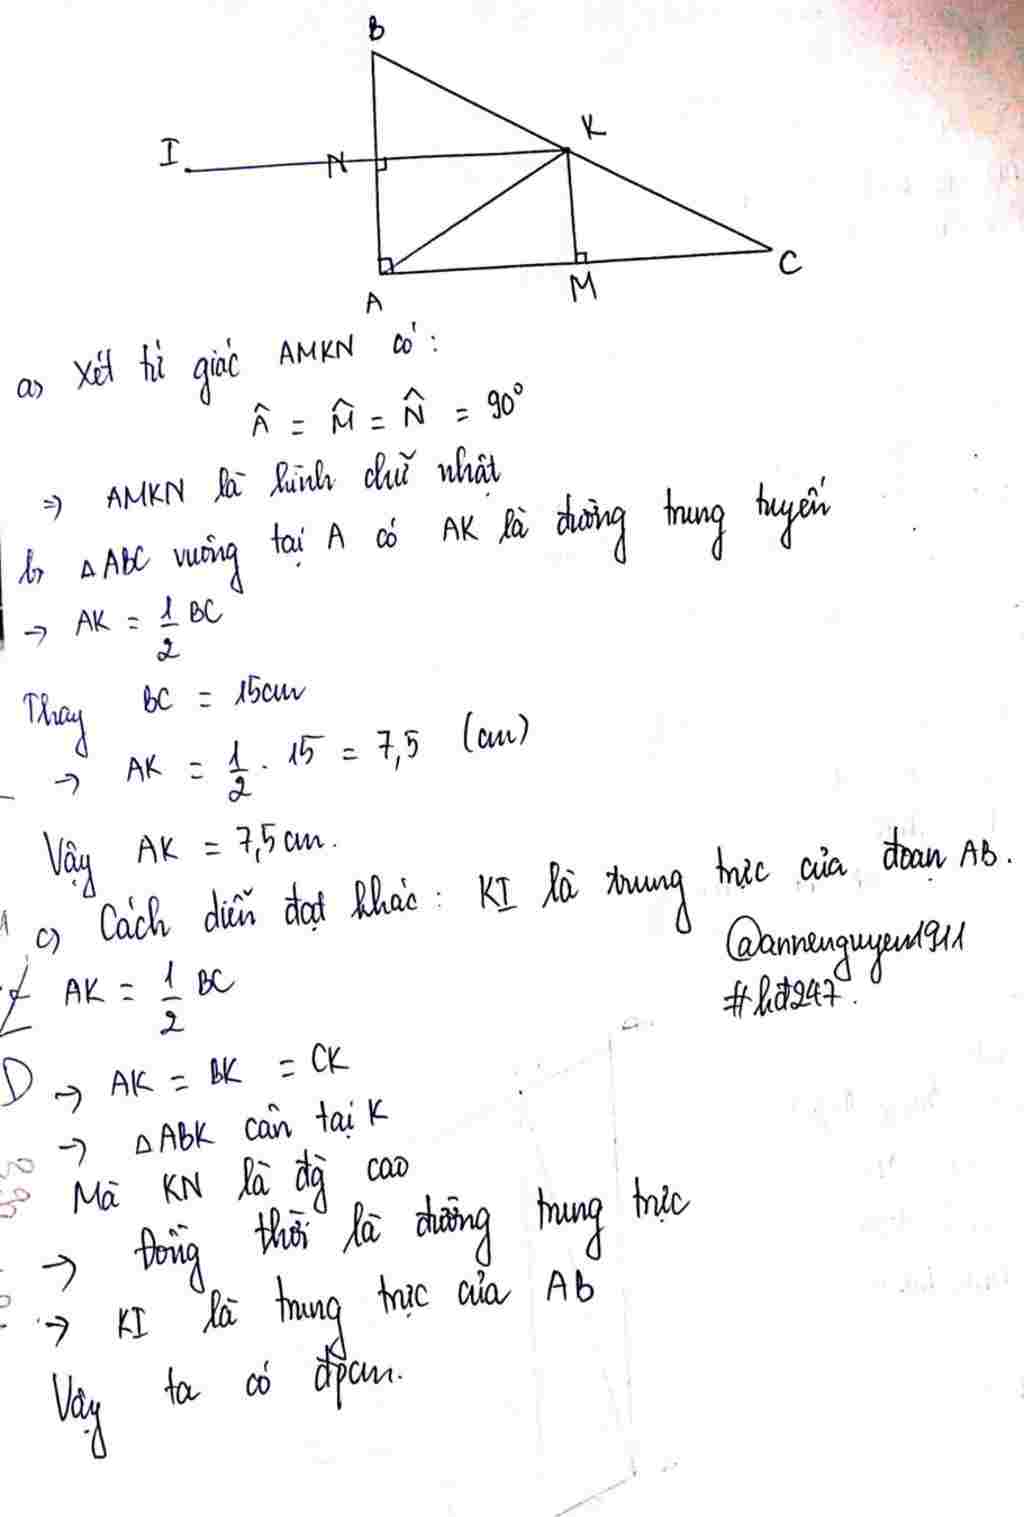 B
K
I
N
C
A
M
a, Xét tứ giác AMKN có:
Â = M̂ = N̂ = 90°
=> AMKN là hình chữ nhật
b, △ABC vuông tại A có AK là đường trung tuyến
→ AK = 1/2 BC
Thay BC = 15cm
→ AK = 1/2 . 15 = 7,5 (cm)
Vậy AK = 7,5cm.
c, Cách diễn đạt khác: KI là trung trực của đoạn AB.
@annenguyen1911
#hđ247.
AK = 1/2 BC
→ AK = BK = CK
→ △ABK cân tại K
Mà KN là đg cao
→ Đồng thời là đường trung trực
→ KI là trung trực của AB
Vậy ta có đpcm.